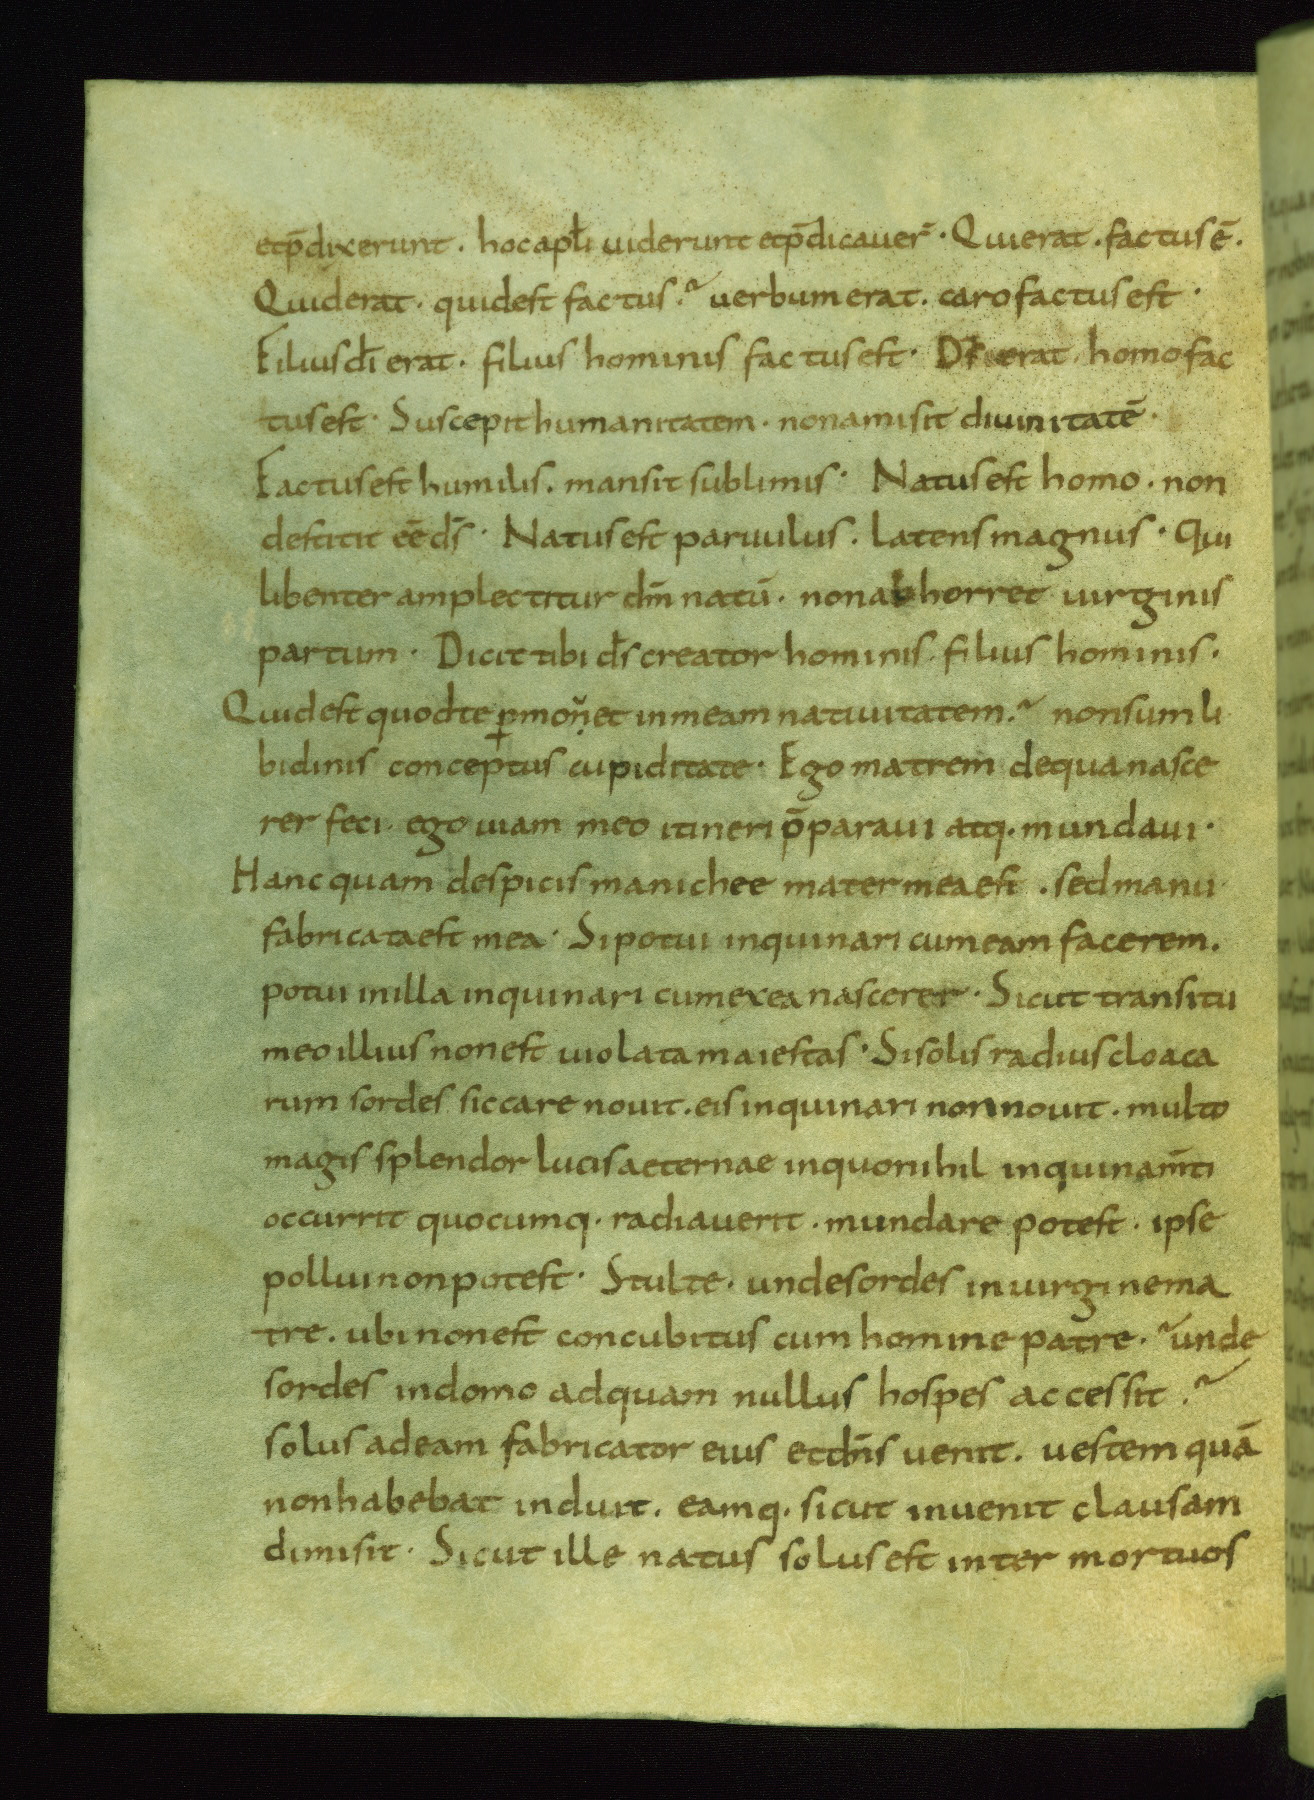 et p̄dixerunt. hoc apłi uiderunt et p̄dicauer̃. Qui erat. factus ē.
Quid erat. quid est factus? uerbum erat. caro factus est.
Filius dī erat. filius hominis factus est. Ds̄ erat homo fac
tus est. Suscepit humanitatem. non amisit diuinitatē.
Factus est humilis. mansit sublimis. Natus est homo. non
destitit eē ds̄. Natus est paruulus. latens magnus. Qui
libenter amplectitur dn̄m natū. non abhorret uirginis
partum. Dicit tibi ds̄ creator hominis. filius hominis.
Quid est quod te ꝑmonet in meam natiuitatem? non sum li
bidinis conceptus cupiditate. Ego matrem de qua nasce
rer feci. ego uiam meo itineri p̄paraui atq. mundaui.
Hanc quam despicis manichee mater mea est. sed manu
fabricata est mea. Si potui inquinari cum eam facerem.
potui in illa inquinari cum ex ea nascerer. Sicut transitu
meo illius non est uiolata maiestas. Si solis radius cloaca
rum sordes siccare nouit. eis inquinari non nouit. multo
magis splendor lucis aeternae in quo nihil inquinam̄ti
occurrit quocumq. radiauerit. mundare potest. ipse
pollui non potest. Stulte. unde sordes in uirgine ma
tre. ubi non est concubitus cum homine patre? unde
sordes in domo ad quam nullus hospes accessit?
solus ad eam fabricator eius et dn̄s uenit. uestem quā
non habebat induit. eamq. sicut inuenit clausam
dimisit. Sicut ille natus solus est inter mortuos